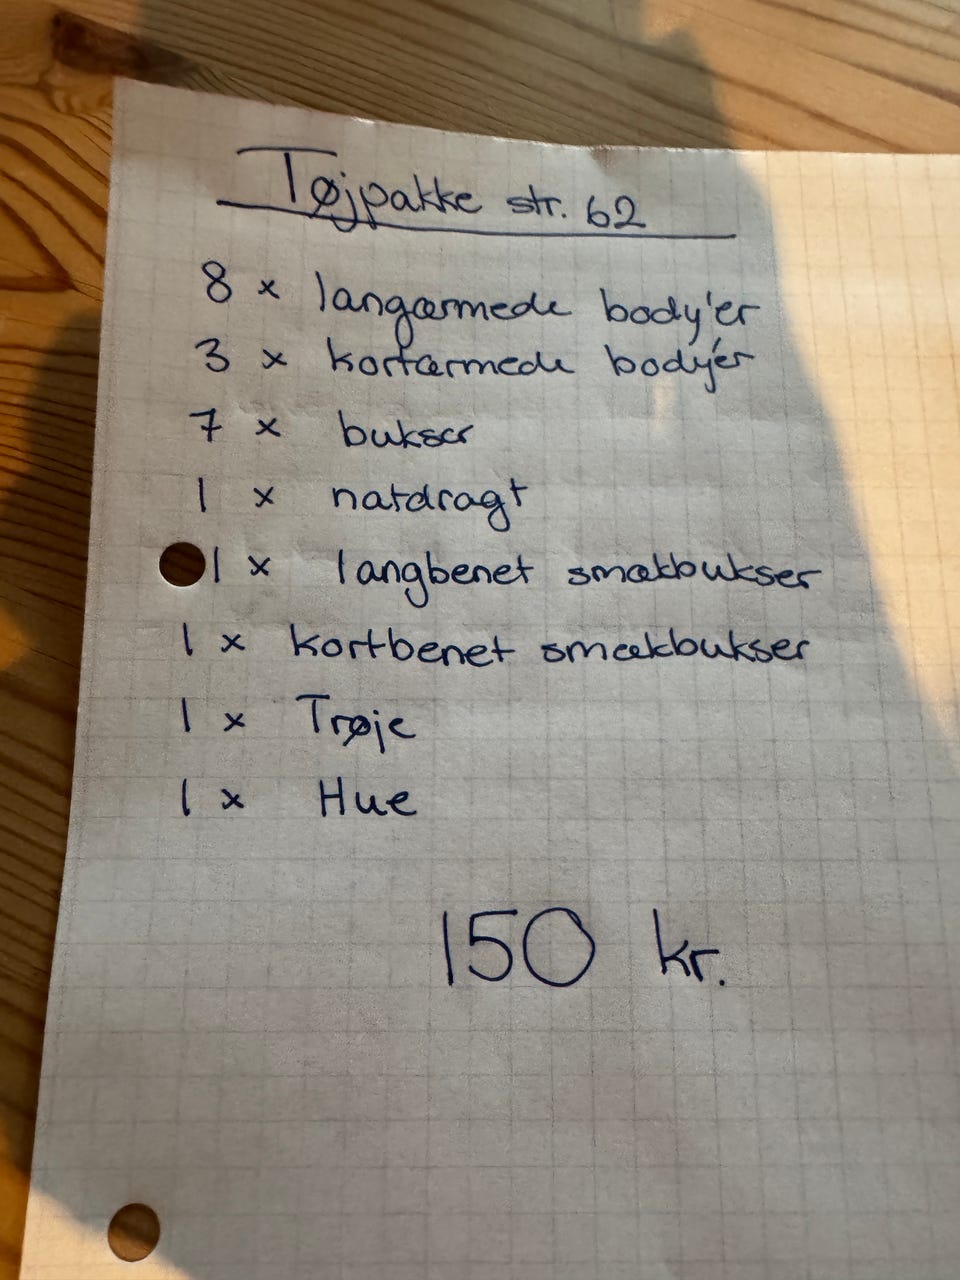 Tøjpakke str. 62
8 x langærmede body'er
3 x kortærmede body'er
7 x bukser
1 x natdragt
1 x langbenet smækbukser
1 x kortbenet smækbukser
1 x Trøje
1 x Hue
150 kr.